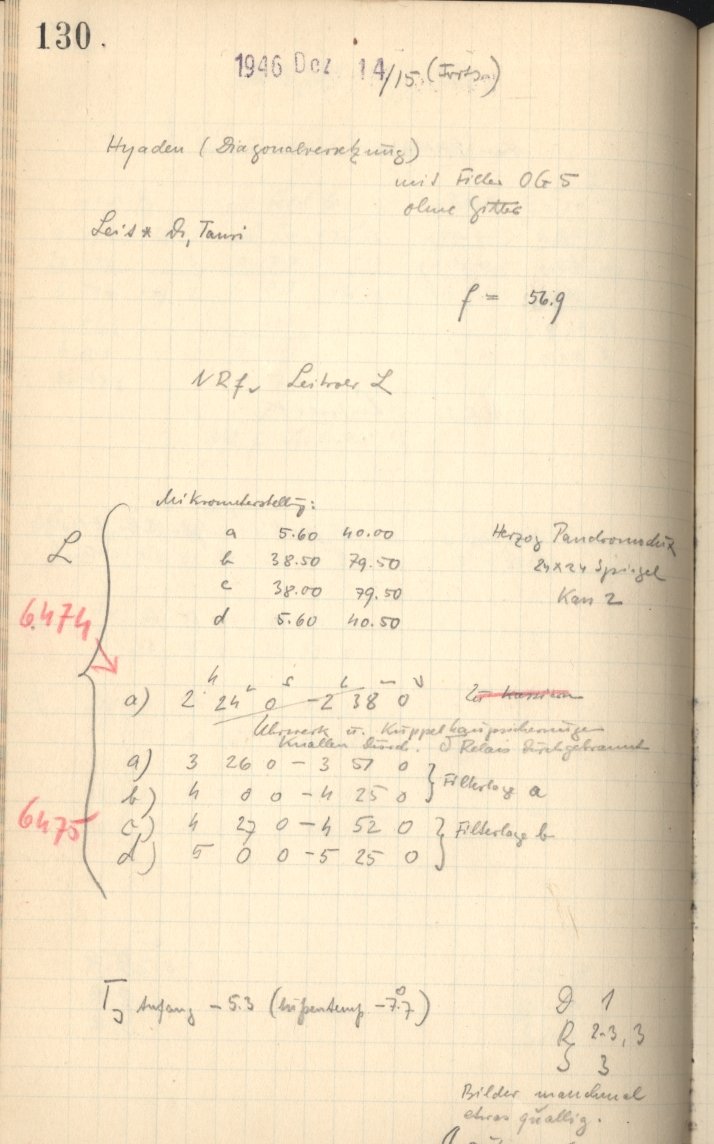 130.
1946 Dez 14/15. (Forts.)
Hyaden (Diagonalversetzung)
mit Filter OG5
ohne Gitter
Leit* Tauri
f = 56.9
NRf. Leitrohr L
Mikrometerstellung:
a 5.60 40.00
b 38.50 79.50
c 38.00 79.50
d 5.60 40.50
Herzog
24x24 Spiegel
Kass 2
L
6474
a) 2 24 0 - 2 38 0
Uhrwerk u. Kuppel
Knallen durch. Relais durchgebrannt
a) 3 26 0 - 3 51 0
b) 4 0 0 - 4 25 0
Filterlage a
c) 4 27 0 - 4 52 0
d) 5 0 0 - 5 25 0
Filterlage b
6475
Anfang - 5.3 (Außentemp - 7.7)
D 1
R 2-3, 3
S 3
Bilder manchmal
etwas quallig.